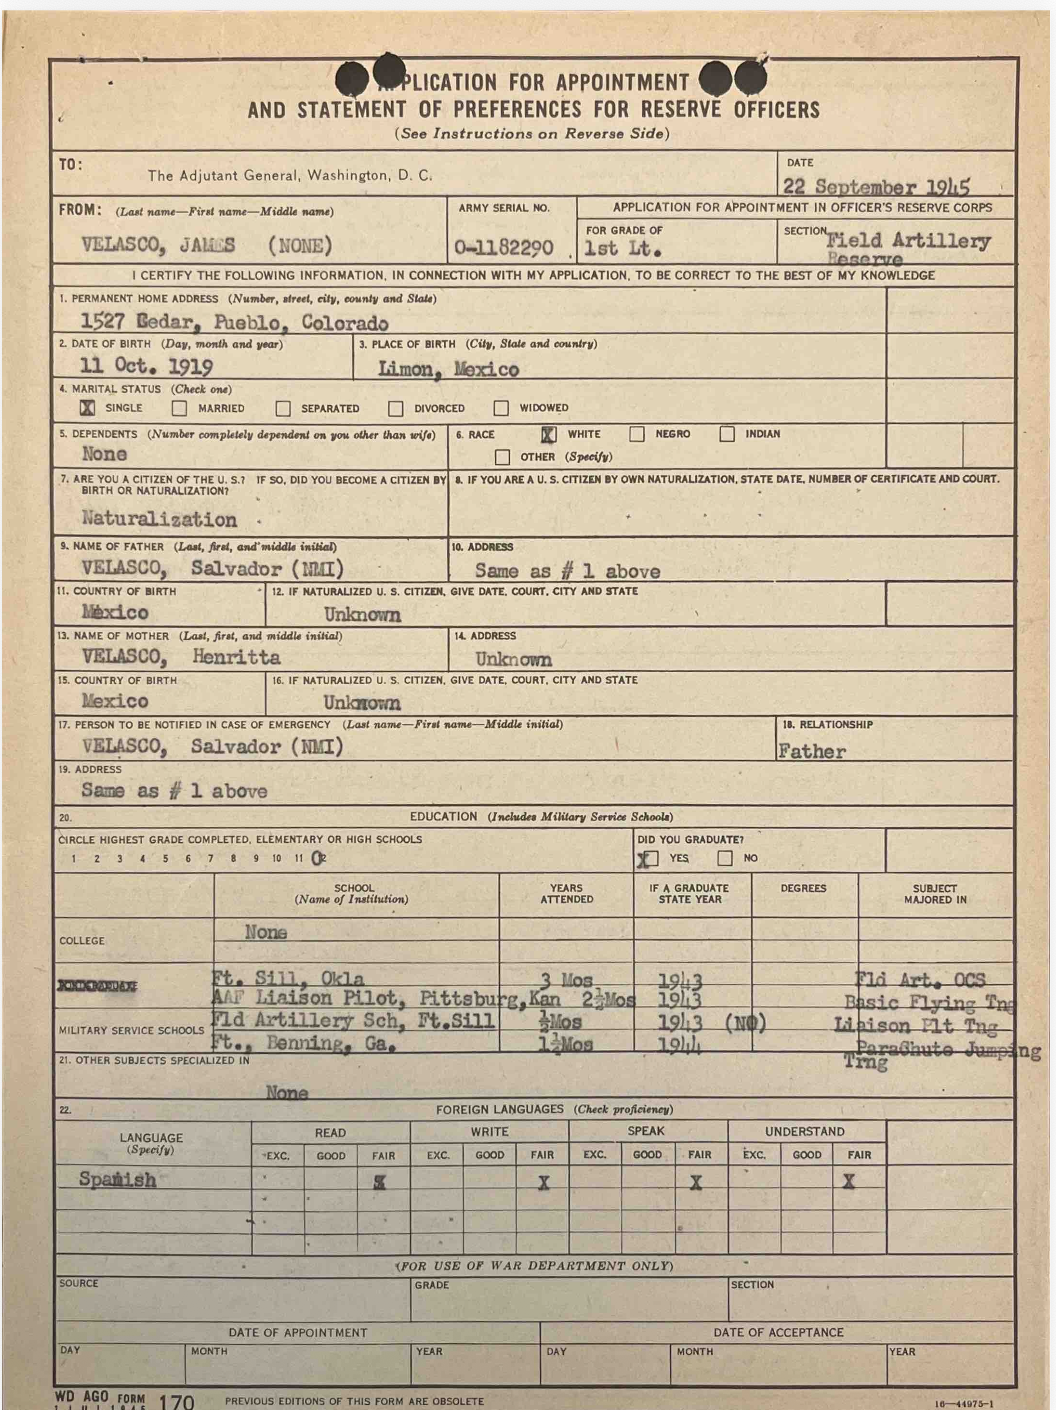 APPLICATION FOR APPOINTMENT
AND STATEMENT OF PREFERENCES FOR RESERVE OFFICERS
(See Instructions on Reverse Side)
TO: The Adjutant General, Washington, D. C.
DATE
22 September 1945
FROM: (Last name—First name—Middle name)
VELASCO, JAMES (NONE)
ARMY SERIAL NO.
O-1182290
APPLICATION FOR APPOINTMENT IN OFFICER'S RESERVE CORPS
FOR GRADE OF
1st Lt.
SECTION Field Artillery
Reserve
I CERTIFY THE FOLLOWING INFORMATION, IN CONNECTION WITH MY APPLICATION, TO BE CORRECT TO THE BEST OF MY KNOWLEDGE
1. PERMANENT HOME ADDRESS (Number, street, city, county and State)
1527 Cedar, Pueblo, Colorado
2. DATE OF BIRTH (Day, month and year)
11 Oct. 1919
3. PLACE OF BIRTH (City, State and country)
Limon, Mexico
4. MARITAL STATUS (Check one)
X SINGLE MARRIED SEPARATED DIVORCED WIDOWED
5. DEPENDENTS (Number completely dependent on you other than wife)
None
6. RACE X WHITE NEGRO INDIAN
OTHER (Specify)
7. ARE YOU A CITIZEN OF THE U. S.? IF SO, DID YOU BECOME A CITIZEN BY
BIRTH OR NATURALIZATION?
Naturalization
8. IF YOU ARE A U. S. CITIZEN BY OWN NATURALIZATION, STATE DATE, NUMBER OF CERTIFICATE AND COURT.
9. NAME OF FATHER (Last, first, and middle initial)
VELASCO, Salvador (NMI)
10. ADDRESS
Same as # 1 above
11. COUNTRY OF BIRTH
Mexico
12. IF NATURALIZED U. S. CITIZEN, GIVE DATE, COURT, CITY AND STATE
Unknown
13. NAME OF MOTHER (Last, first, and middle initial)
VELASCO, Henritta
14. ADDRESS
Unknown
15. COUNTRY OF BIRTH
Mexico
16. IF NATURALIZED U. S. CITIZEN, GIVE DATE, COURT, CITY AND STATE
Unknown
17. PERSON TO BE NOTIFIED IN CASE OF EMERGENCY (Last name—First name—Middle initial)
VELASCO, Salvador (NMI)
18. RELATIONSHIP
Father
19. ADDRESS
Same as # 1 above
20. EDUCATION (Includes Military Service Schools)
CIRCLE HIGHEST GRADE COMPLETED, ELEMENTARY OR HIGH SCHOOLS
1 2 3 4 5 6 7 8 9 10 11 12
DID YOU GRADUATE?
X YES NO
SCHOOL
(Name of Institution)
YEARS
ATTENDED
IF A GRADUATE
STATE YEAR
DEGREES
SUBJECT
MAJORED IN
COLLEGE None
Ft. Sill, Okla 3 Mos 1943 Fld Art. OCS
AAF Liaison Pilot, Pittsburg, Kan 2½Mos 1943 Basic Flying Tng
MILITARY SERVICE SCHOOLS Fld Artillery Sch, Ft.Sill ½Mos 1943 (NO) Liaison Plt Tng
Ft., Benning, Ga. 1½Mos 1944 Parachute Jumping
Trng
21. OTHER SUBJECTS SPECIALIZED IN
None
22. FOREIGN LANGUAGES (Check proficiency)
LANGUAGE
(Specify)
READ WRITE SPEAK UNDERSTAND
EXC. GOOD FAIR EXC. GOOD FAIR EXC. GOOD FAIR EXC. GOOD FAIR
Spanish X X X X
(FOR USE OF WAR DEPARTMENT ONLY)
SOURCE GRADE SECTION
DATE OF APPOINTMENT DATE OF ACCEPTANCE
DAY MONTH YEAR DAY MONTH YEAR
WD AGO FORM 170 PREVIOUS EDITIONS OF THIS FORM ARE OBSOLETE 16—44975-1